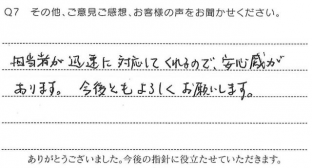 Q7 その他、ご意見ご感想、お客様の声をお聞かせください。
担当者が迅速に対応してくれるので、安心感が
あります。 今後ともよろしくお願いします。
ありがとうございました。今後の指針に役立たせていただきます。